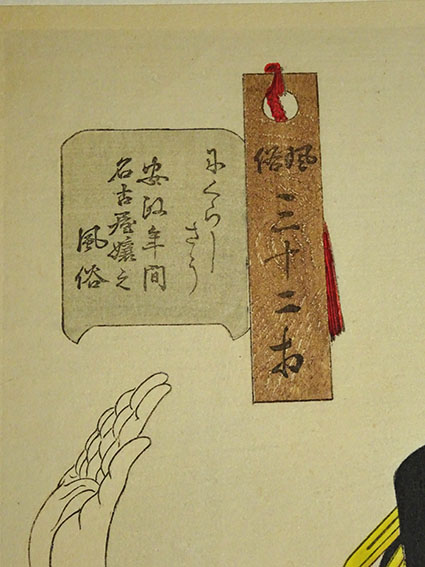 風俗
三十二相
にくらしさう
安政年間
名古屋嬢之
風俗